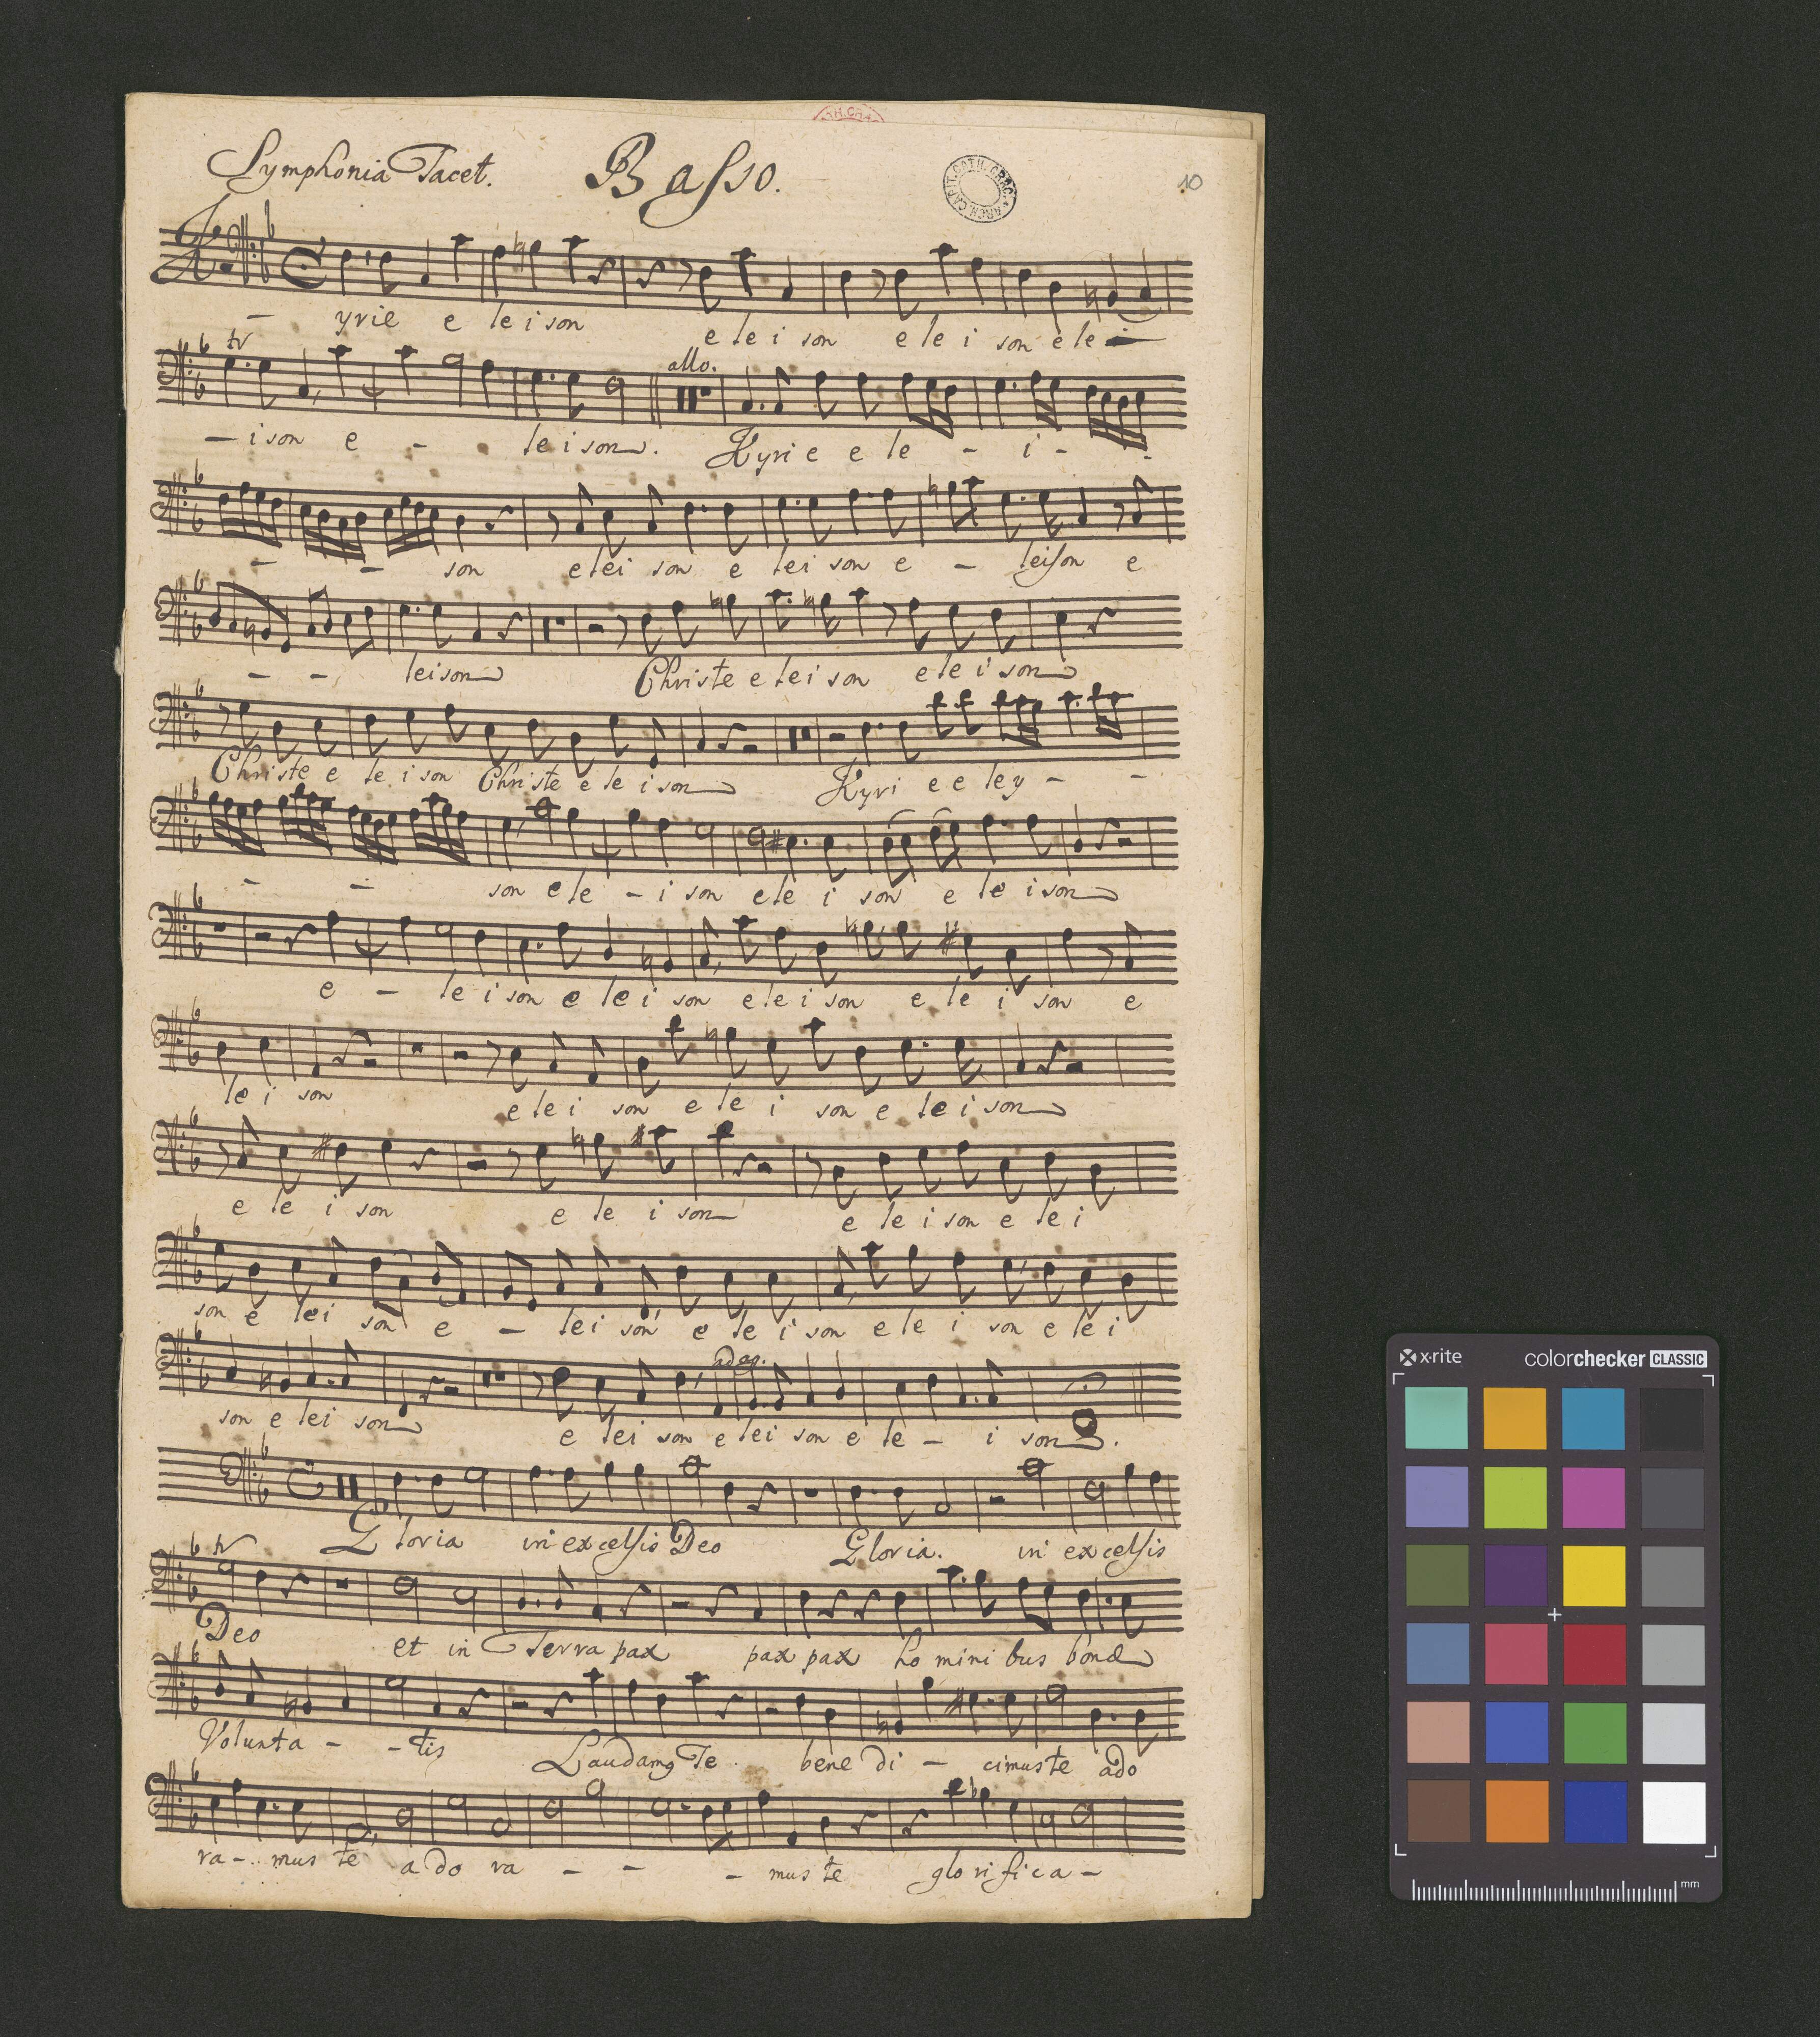 Symphonia Tacet. Basso. 10
ARCH. CAPIT. CATH. CRAC.
Kyrie e le i son e le i son e le i son e le i
- i son e - - le i son. allo. Kyri e e le - i -
- - son e lei son e lei son e - leison e
- - leison Christe e lei son e le i son
Christe e le i son Christe e le i son Kyri e e ley - -
- - son e le - i son e le i son e le i son
e - le i son e le i son e le i son e le i son e
le i son e le i son e le i son e le i son
e le i son e le i son e le i son e le i
son e lei son e - lei son e le i son e le i son e le i
adag.
son e lei son e lei son e lei son e le - i son.
Gloria in excelsis Deo Gloria. in excelsis
tr
Deo et in Terra pax pax pax ho mini bus bonæ
Volunta - - tis Laudamq Te bene di - cimus te ado
ra - mus te a do ra - - - mus te glo ri fi ca -
x·rite colorchecker CLASSIC
mm